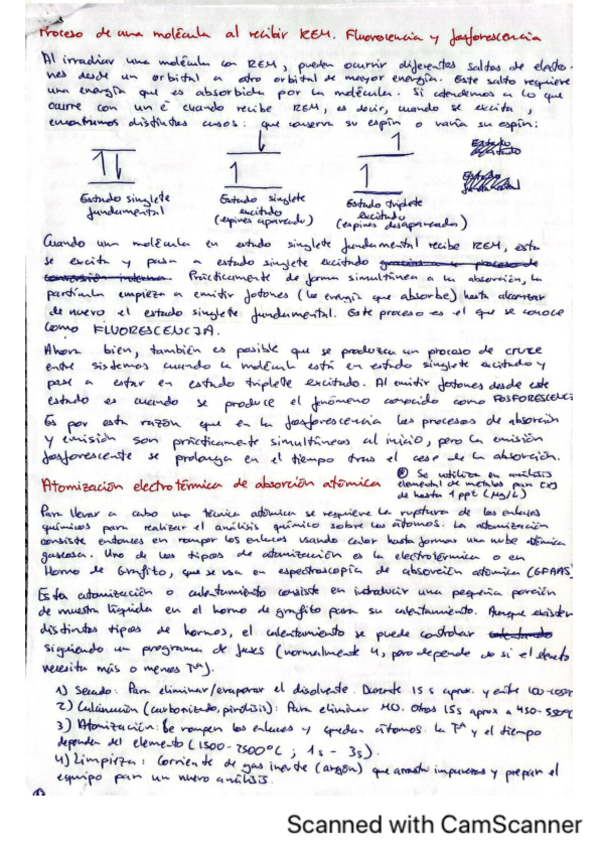 Proceso de una molécula al recibir REM. Fluorescencia y fosforescencia
Al irradiar una molécula con REM, pueden ocurrir diferentes saltos de electro-
nes desde un orbital a otro orbital de mayor energía. Este salto requiere
una energía que es absorbida por la molécula. Si atendemos a lo que
ocurre con un e⁻ cuando recibe REM, es decir, cuando se excita,
encontramos distintos casos: que conserve su espín o varía su espín:
Estado singlete
fundamental
Estado singlete
excitado
(espines apareado)
Estado triplete
excitado
(espines desapareados)
Cuando una molécula en estado singlete fundamental recibe REM, esta
se excita y pasa a estado singlete excitado gracias a un proceso de
conversión interna. Prácticamente de forma simultánea a la absorción, la
partícula empieza a emitir fotones (la energía que absorbe) hasta alcanzar
de nuevo el estado singlete fundamental. Este proceso es el que se conoce
como FLUORESCENCIA.
Ahora bien, también es posible que se produzca un proceso de cruce
entre sistemas cuando la molécula está en estado singlete excitado y
pase a estar en estado triplete excitado. Al emitir fotones desde este
estado es cuando se produce el fenómeno conocido como FOSFORESCENCI
Es por esta razón que en la fosforescencia los procesos de absorción
y emisión son prácticamente simultáneos al inicio, pero la emisión
fosforescente se prolonga en el tiempo tras el cese de la absorción.
Atomización electrotérmica de absorción atómica
Se utiliza en análisis
elemental de metales para
de hasta 1 ppb (µg/L)
Para llevar a cabo una técnica atómica se requiere la ruptura de los enlaces
químicos para realizar el análisis químico sobre los átomos. La atomización
consiste entonces en romper los enlaces usando calor hasta formar una nube atómica
gaseosa. Uno de los tipos de atomización es la electrotérmica o en
Horno de Grafito, que se usa en espectroscopía de absorción atómica (GFAAS)
Esta atomización o calentamiento consiste en introducir una pequeña porción
de muestra líquida en el horno de grafito para su calentamiento. Aunque existen
distintos tipos de hornos, el calentamiento se puede controlar
siguiendo un programa de fases (normalmente 4, pero depende de si el
necesita más o menos Tª).
1) Secado: Para eliminar/evaporar el disolvente. Durante 15 s aprox. y entre
2) Calcinación (carbonizado, pirólisis): Para eliminar MO. Otros 15s aprox a
3) Atomización: Se rompen los enlaces y quedan átomos. La Tª y el tiempo
dependen del elemento (1500-2500ºC ; 1s - 3s).
4) Limpieza: Corriente de gas inerte (argón) que arrastra impurezas y prepara el
equipo para un nuevo análisis.
Scanned with CamScanner